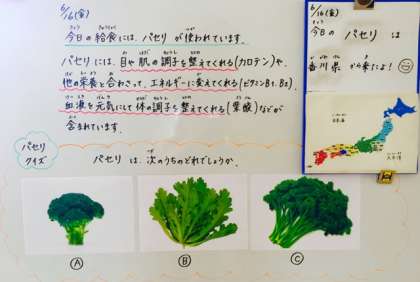 6/16(金)
今日の給食には、パセリが使われています。
パセリには、目や肌の調子を整えてくれる(カロテン)や、
他の栄養と合わさって、エネルギーに変えてくれる(ビタミンB1、B2)
血液を元気にして体の調子を整えてくれる(葉酸)などが
含まれています。
パセリ
クイズ
パセリは、次のうちのどれでしょうか。
A
B
C
6/16(金)
今日のパセリは
香川県から来たよ!
日本海
太平洋